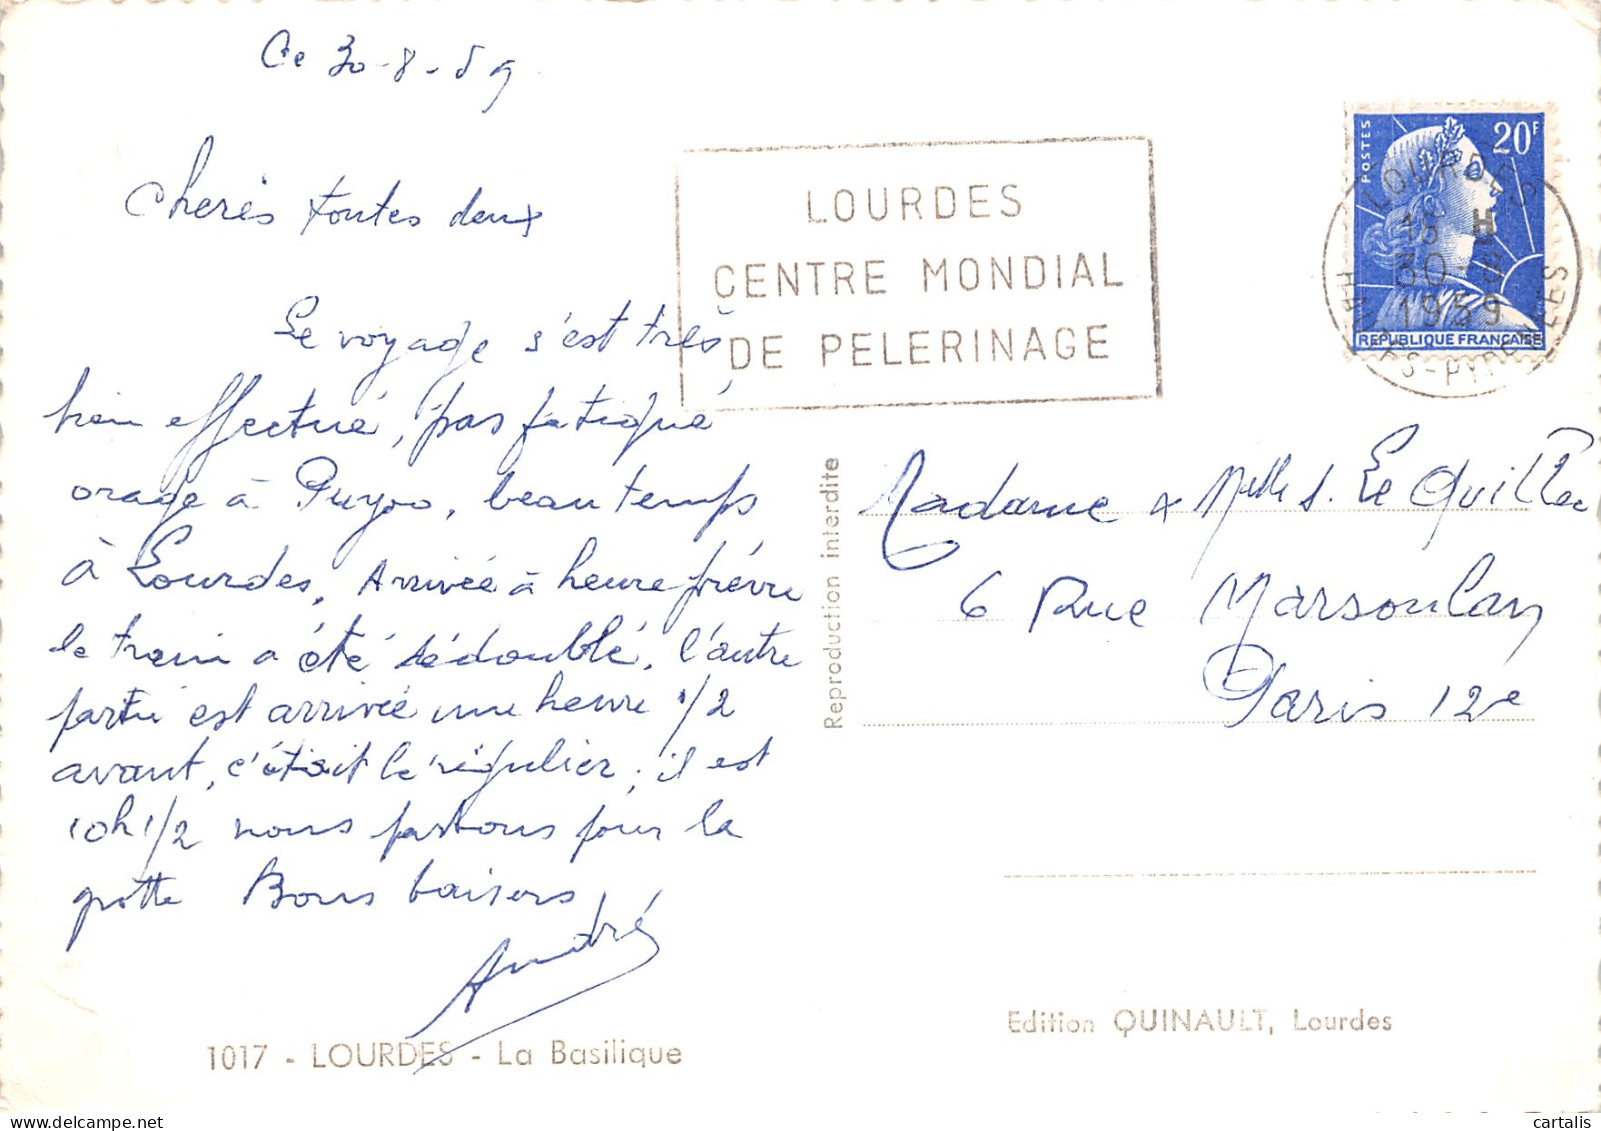 Ce 30-8-59
Cheres toutes deux
Le voyage s'est très
bien effectué, pas fatigué
orage à Puyoo, beau temps
à Lourdes. Arrivée à heure prévue
le train a été dédoublé, l'autre
partie est arrivée une heure 1/2
avant, c'était le régulier; il est
10h 1/2 nous partons pour la
grotte Bons baisers
André
1017 - LOURDES - La Basilique
LOURDES
CENTRE MONDIAL
DE PELERINAGE
POSTES
20F
REPUBLIQUE FRANÇAISE
LOURDES
18 H
30-8
1959
HAUTES-PYRENEES
Reproduction interdite
Madame & Melle S. Le Quillec
6 Rue Marsoulan
Paris 12e
Edition QUINAULT, Lourdes
cartalis